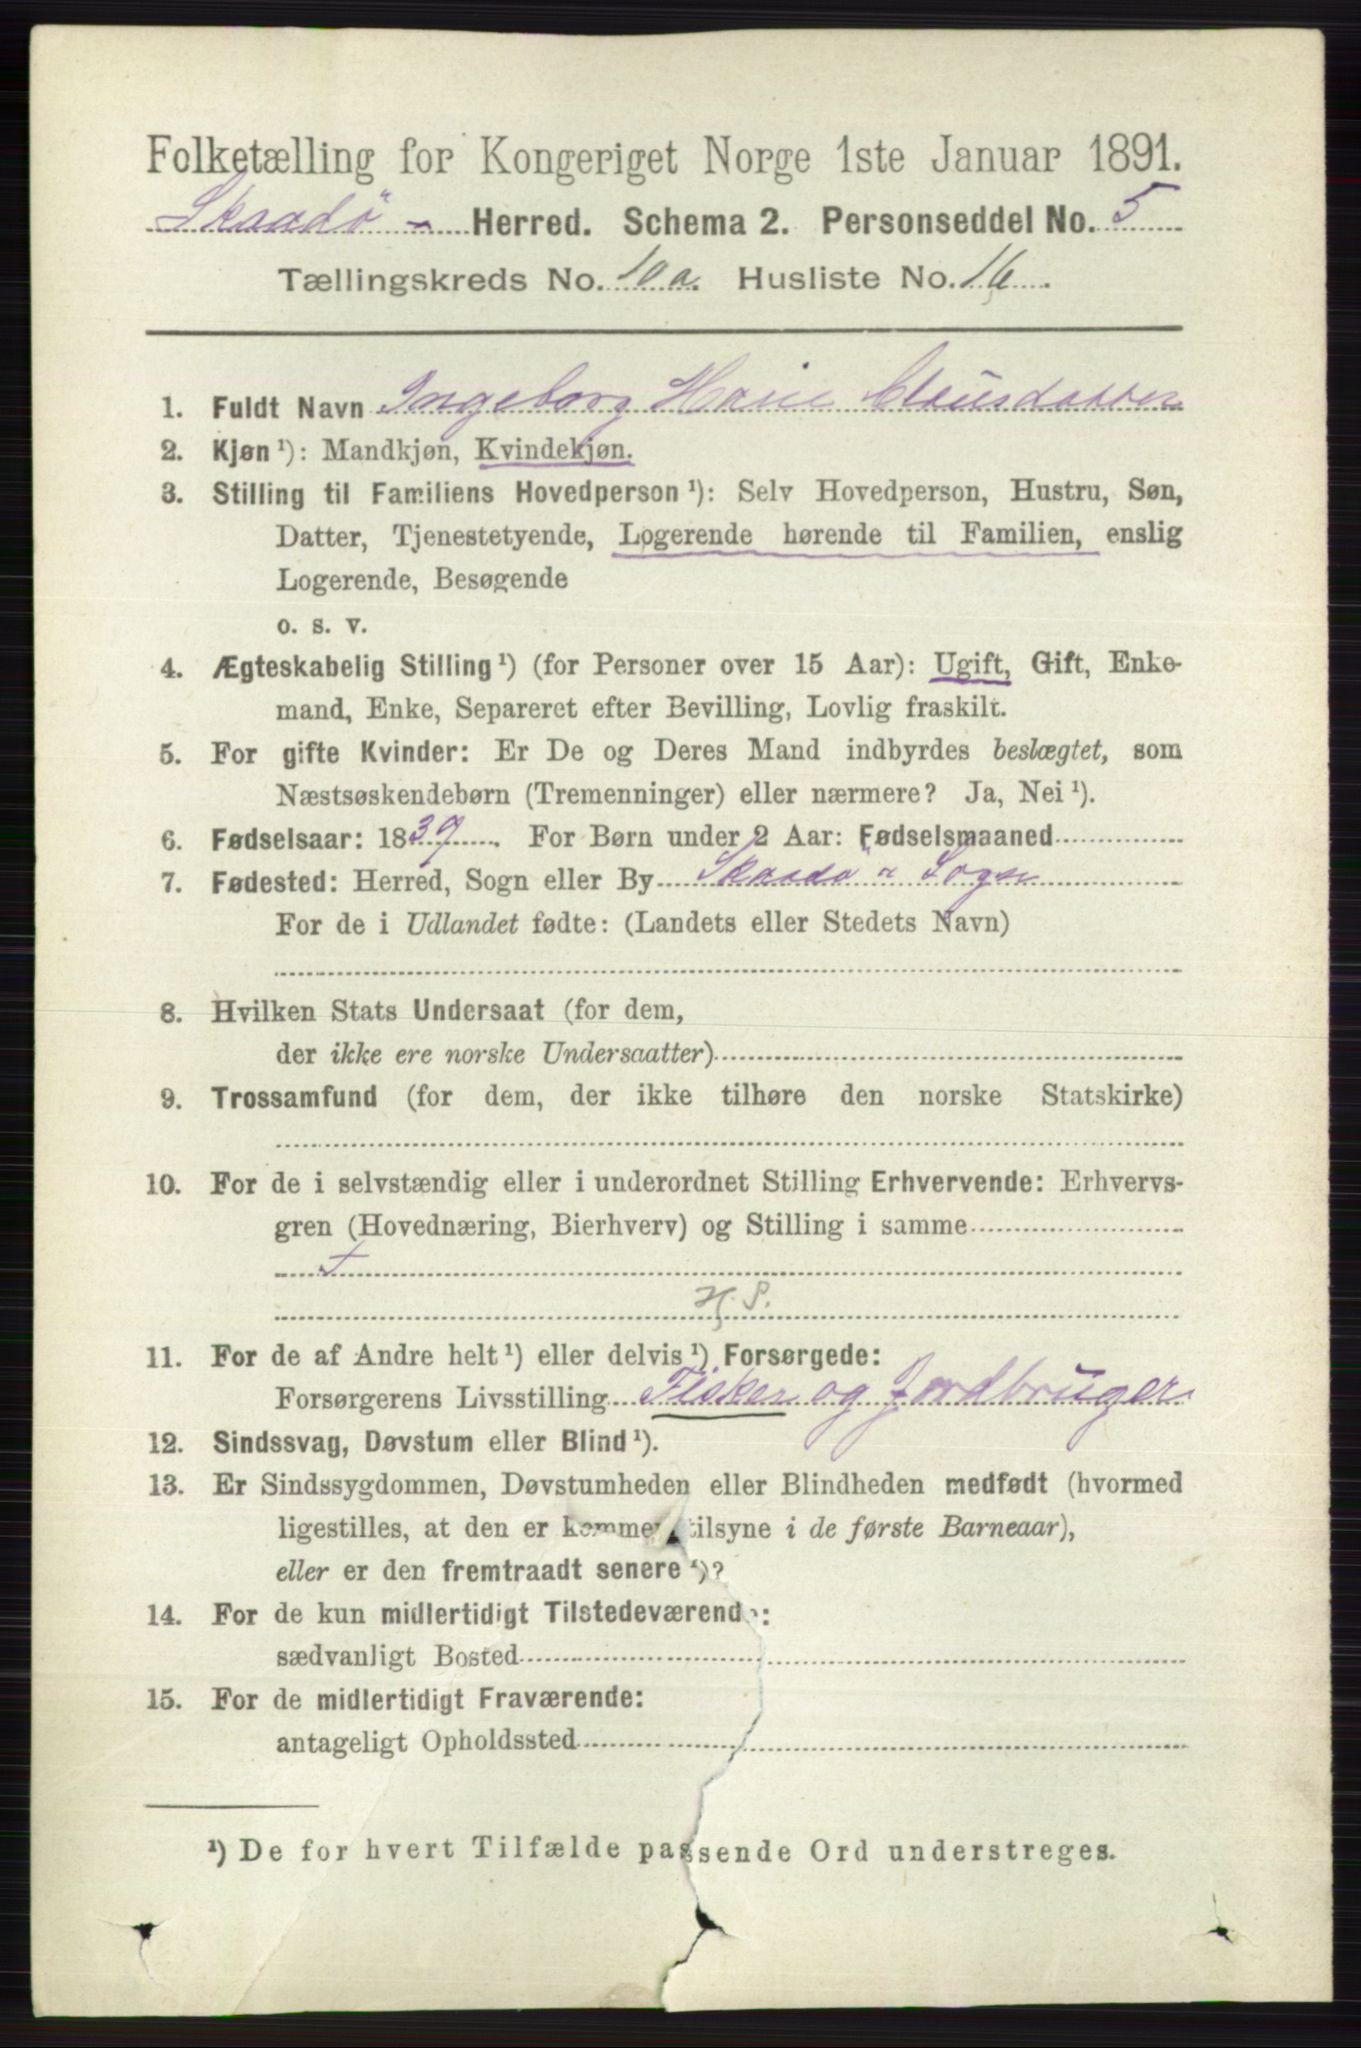 Folketælling for Kongeriget Norge 1ste Januar 1891.
Skaadö - Herred. Schema 2. Personseddel No. 5
Tællingskreds No. 10a. Husliste No. 16.
1. Fuldt Navn Ingeborg Marie Clausdatter
2. Kjøn ¹): Mandkjøn, Kvindekjøn.
3. Stilling til Familiens Hovedperson ¹): Selv Hovedperson, Hustru, Søn,
Datter, Tjenestetyende, Logerende hørende til Familien, enslig
Logerende, Besøgende
o. s. v.
4. Ægteskabelig Stilling ¹) (for Personer over 15 Aar): Ugift, Gift, Enke-
mand, Enke, Separeret efter Bevilling, Lovlig fraskilt.
5. For gifte Kvinder: Er De og Deres Mand indbyrdes beslægtet, som
Næstsøskendebørn (Tremenninger) eller nærmere? Ja, Nei ¹).
6. Fødselsaar: 1839. For Børn under 2 Aar: Fødselsmaaned
7. Fødested: Herred, Sogn eller By Skaadö Sogn
For de i Udlandet fødte: (Landets eller Stedets Navn)
8. Hvilken Stats Undersaat (for dem,
der ikke ere norske Undersaatter)
9. Trossamfund (for dem, der ikke tilhøre den norske Statskirke)
10. For de i selvstændig eller i underordnet Stilling Erhvervende: Erhvervs-
gren (Hovednæring, Bierhverv) og Stilling i samme
H. S.
11. For de af Andre helt ¹) eller delvis ¹) Forsørgede:
Forsørgerens Livsstilling Fisker og Jordbruger
12. Sindssvag, Døvstum eller Blind ¹).
13. Er Sindssygdommen, Døvstumheden eller Blindheden medfødt (hvormed
ligestilles, at den er kommen tilsyne i de første Barneaar),
eller er den fremtraadt senere ¹)?
14. For de kun midlertidigt Tilstedeværende:
sædvanligt Bosted
15. For de midlertidigt Fraværende:
antageligt Opholdssted
¹) De for hvert Tilfælde passende Ord understreges.